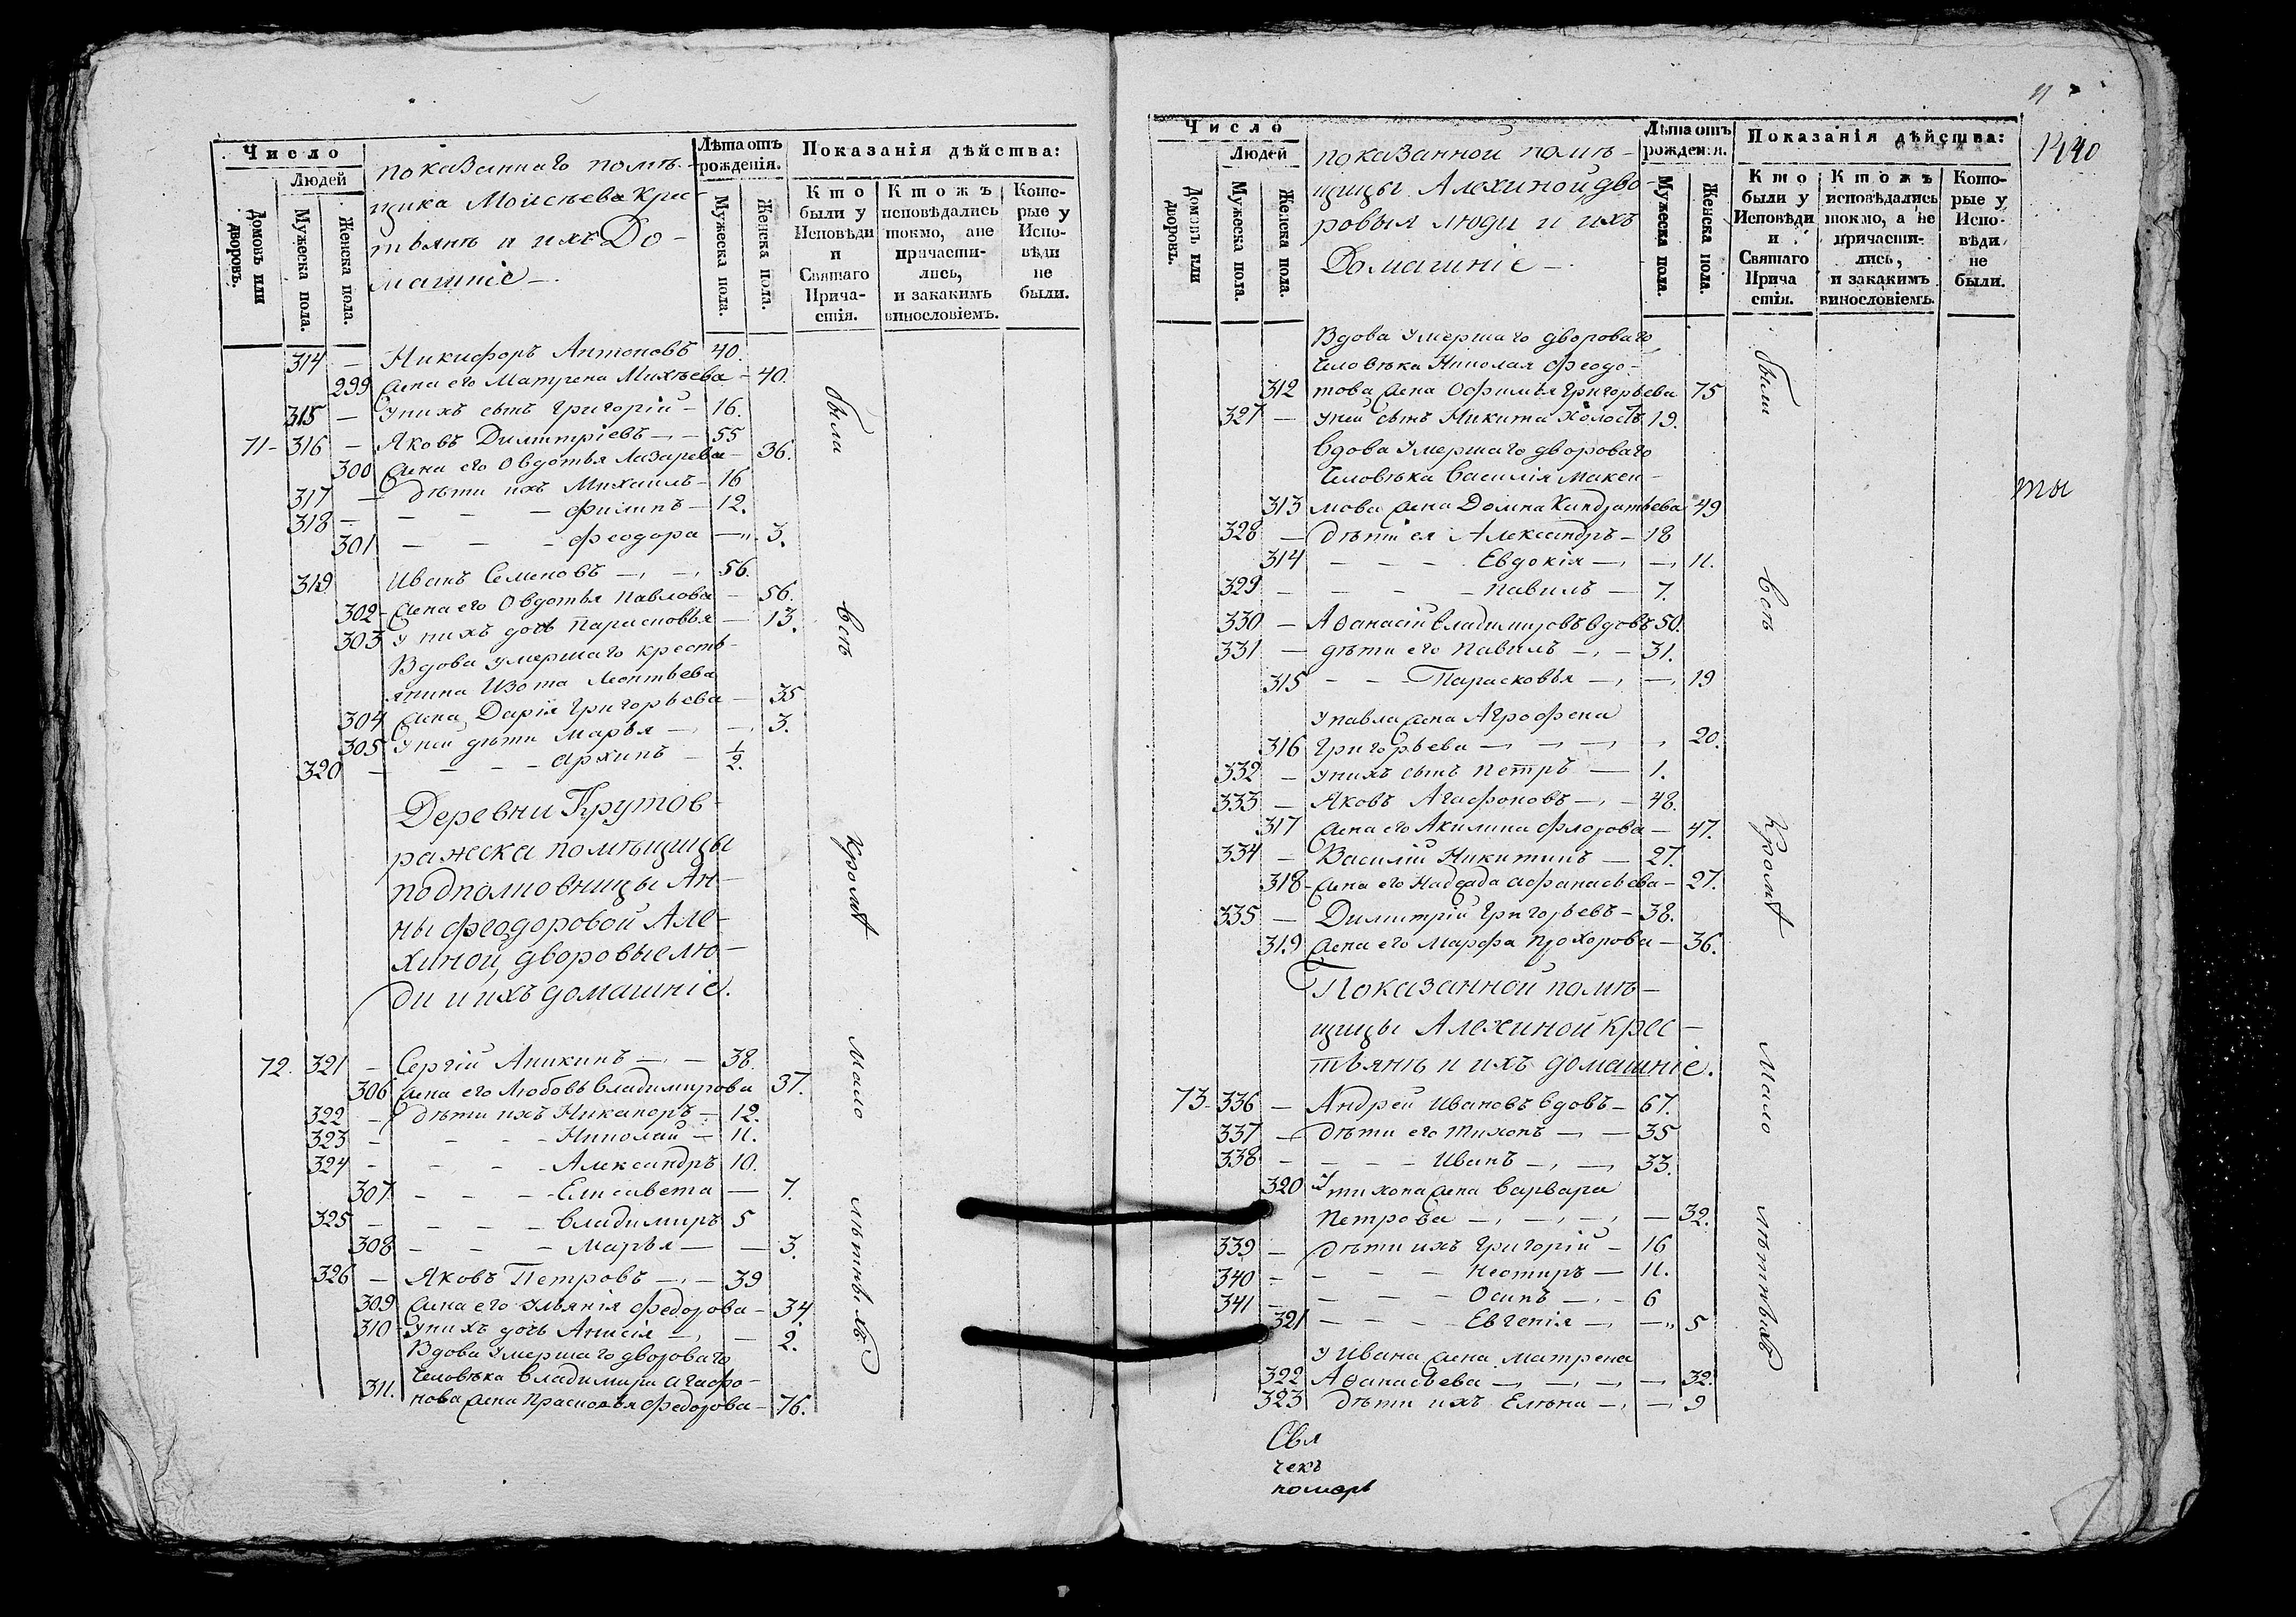 Число
Людей
Домовъ или дворовъ.
Мужеска пола.
Женска пола.
показаннаго помѣ-
щика Моисѣева крес-
тьянъ и ихъ До-
машніе —
Лѣта отъ рожденія.
Мужеска пола.
Женска пола.
Показанія дѣйства:
Кто были у Исповѣди и Святаго Прича-стія.
Ктожъ исповѣдались токмо, а не причасти-лись, и закакимъ винословіемъ.
Кото-рые у Испо-вѣди не были.
314 — Никифоръ Антоновъ 40.
299 жена его Матрена Михѣева — 40.
315 — у нихъ сынъ Григорій — 16.
71 — 316 — Яковъ Димитріевъ — — 55
300 жена его Овдотья Лазарева — 36.
317 — дѣти ихъ Михаилъ — 16
318 — — — — Филипъ — 12.
301 — — — Феодора — 3.
319 Иванъ Семеновъ — — 56.
302 — жена его Овдотья Павлова — 56.
303 у нихъ дочь Парасковья — 13.
Вдова умершаго кресть-
янина Изота Леонтьева
304 жена Дарія Григорьева — 35
305 у ней дѣти Марья — — 3.
320 — — — — Архипъ — 1/2.
Деревни Крутов-
ражска помѣщицы
подполковницы Ан-
ны Феодоровой Але-
хиной, дворовые лю-
ди и ихъ домашніе.
72. 321 — Сергій Аникинъ — — 38.
306 жена его Любовь Владимирова 37.
322 — дѣти ихъ Никаноръ — 12.
323 — — — — Николай — 11.
324 — — — — Александръ 10.
307 — — — Елисавета — 7.
325 — — — — Владимиръ 5
308 — — — Марья — — 3.
326 — Яковъ Петровъ — — 39
309 жена его Ульянія Федорова — 34.
310 у нихъ дочь Анисія — — 2.
Вдова умершаго двороваго
человѣка Владимира Агафо-
311. нова жена Прасковья Федорова — 76.
были
всѣ
кромѣ
мало
лѣтныхъ
11
1440
Число
Людей
Домовъ или дворовъ.
Мужеска пола.
Женска пола.
показанной помѣ-
щицы Алехиной, дво-
ровыя люди и ихъ
Домашніе —
Лѣта отъ рожденія.
Мужеска пола.
Женска пола.
Показанія дѣйства:
Кто были у Исповѣди и Святаго Прича стія.
Ктожъ исповѣдались токмо, а не причасти-лись, и закакимъ винословіемъ.
Кото-рые у Испо-вѣди не были.
Вдова умершаго двороваго
человѣка Николая Феодо-
312 това жена Офимья Григорьева 75
327 — у ней сынъ Никита холостъ 19.
Вдова умершаго двороваго
человѣка Василія Макси-
313 мова жена Домна Кандратьева 49
328 — дѣти ея Александръ — 18
314 — — — Евдокія — — 11.
329 — — — — Павилъ — 7.
330 — Афанасій Владимировъ вдовъ 50.
331 — дѣти его Павилъ — — 31.
315 — — Парасковья — — 19
у Павла жена Агрофена
316 Григорьева — — — 20.
332 — у нихъ сынъ Петръ — 1.
333 — Яковъ Агафоновъ — — 48.
317 жена его Акилина Флорова — 47.
334 — Василій Никитинъ — 27.
318 — жена его Надежда Афанасьева — 27.
335 — Димитрій Григорьевъ — 38.
319 жена его Марфа Прохорова — 36.
Показанной помѣ-
щицы Алехиной крес-
тьянъ и ихъ домашніе.
73 — 336 — Андрей Ивановъ вдовъ — 67.
337 — дѣти его Тихонъ — — 35
338 — — — — Иванъ — — 33.
320 у Тихона жена Варвара
Петрова — — — — 32.
339 — дѣти ихъ Григорій — 16
340 — — — — Нестиръ — 11.
341 — — — — Осипъ — — 6
321 — — — — Евгенія — — 5
у Ивана жена Матрена
322 Афанасьева — — — — 32.
323 дѣти ихъ Елѣна — — 9
были
всѣ
кромѣ
мало
лѣтныхъ
ты
Свя
чекъ